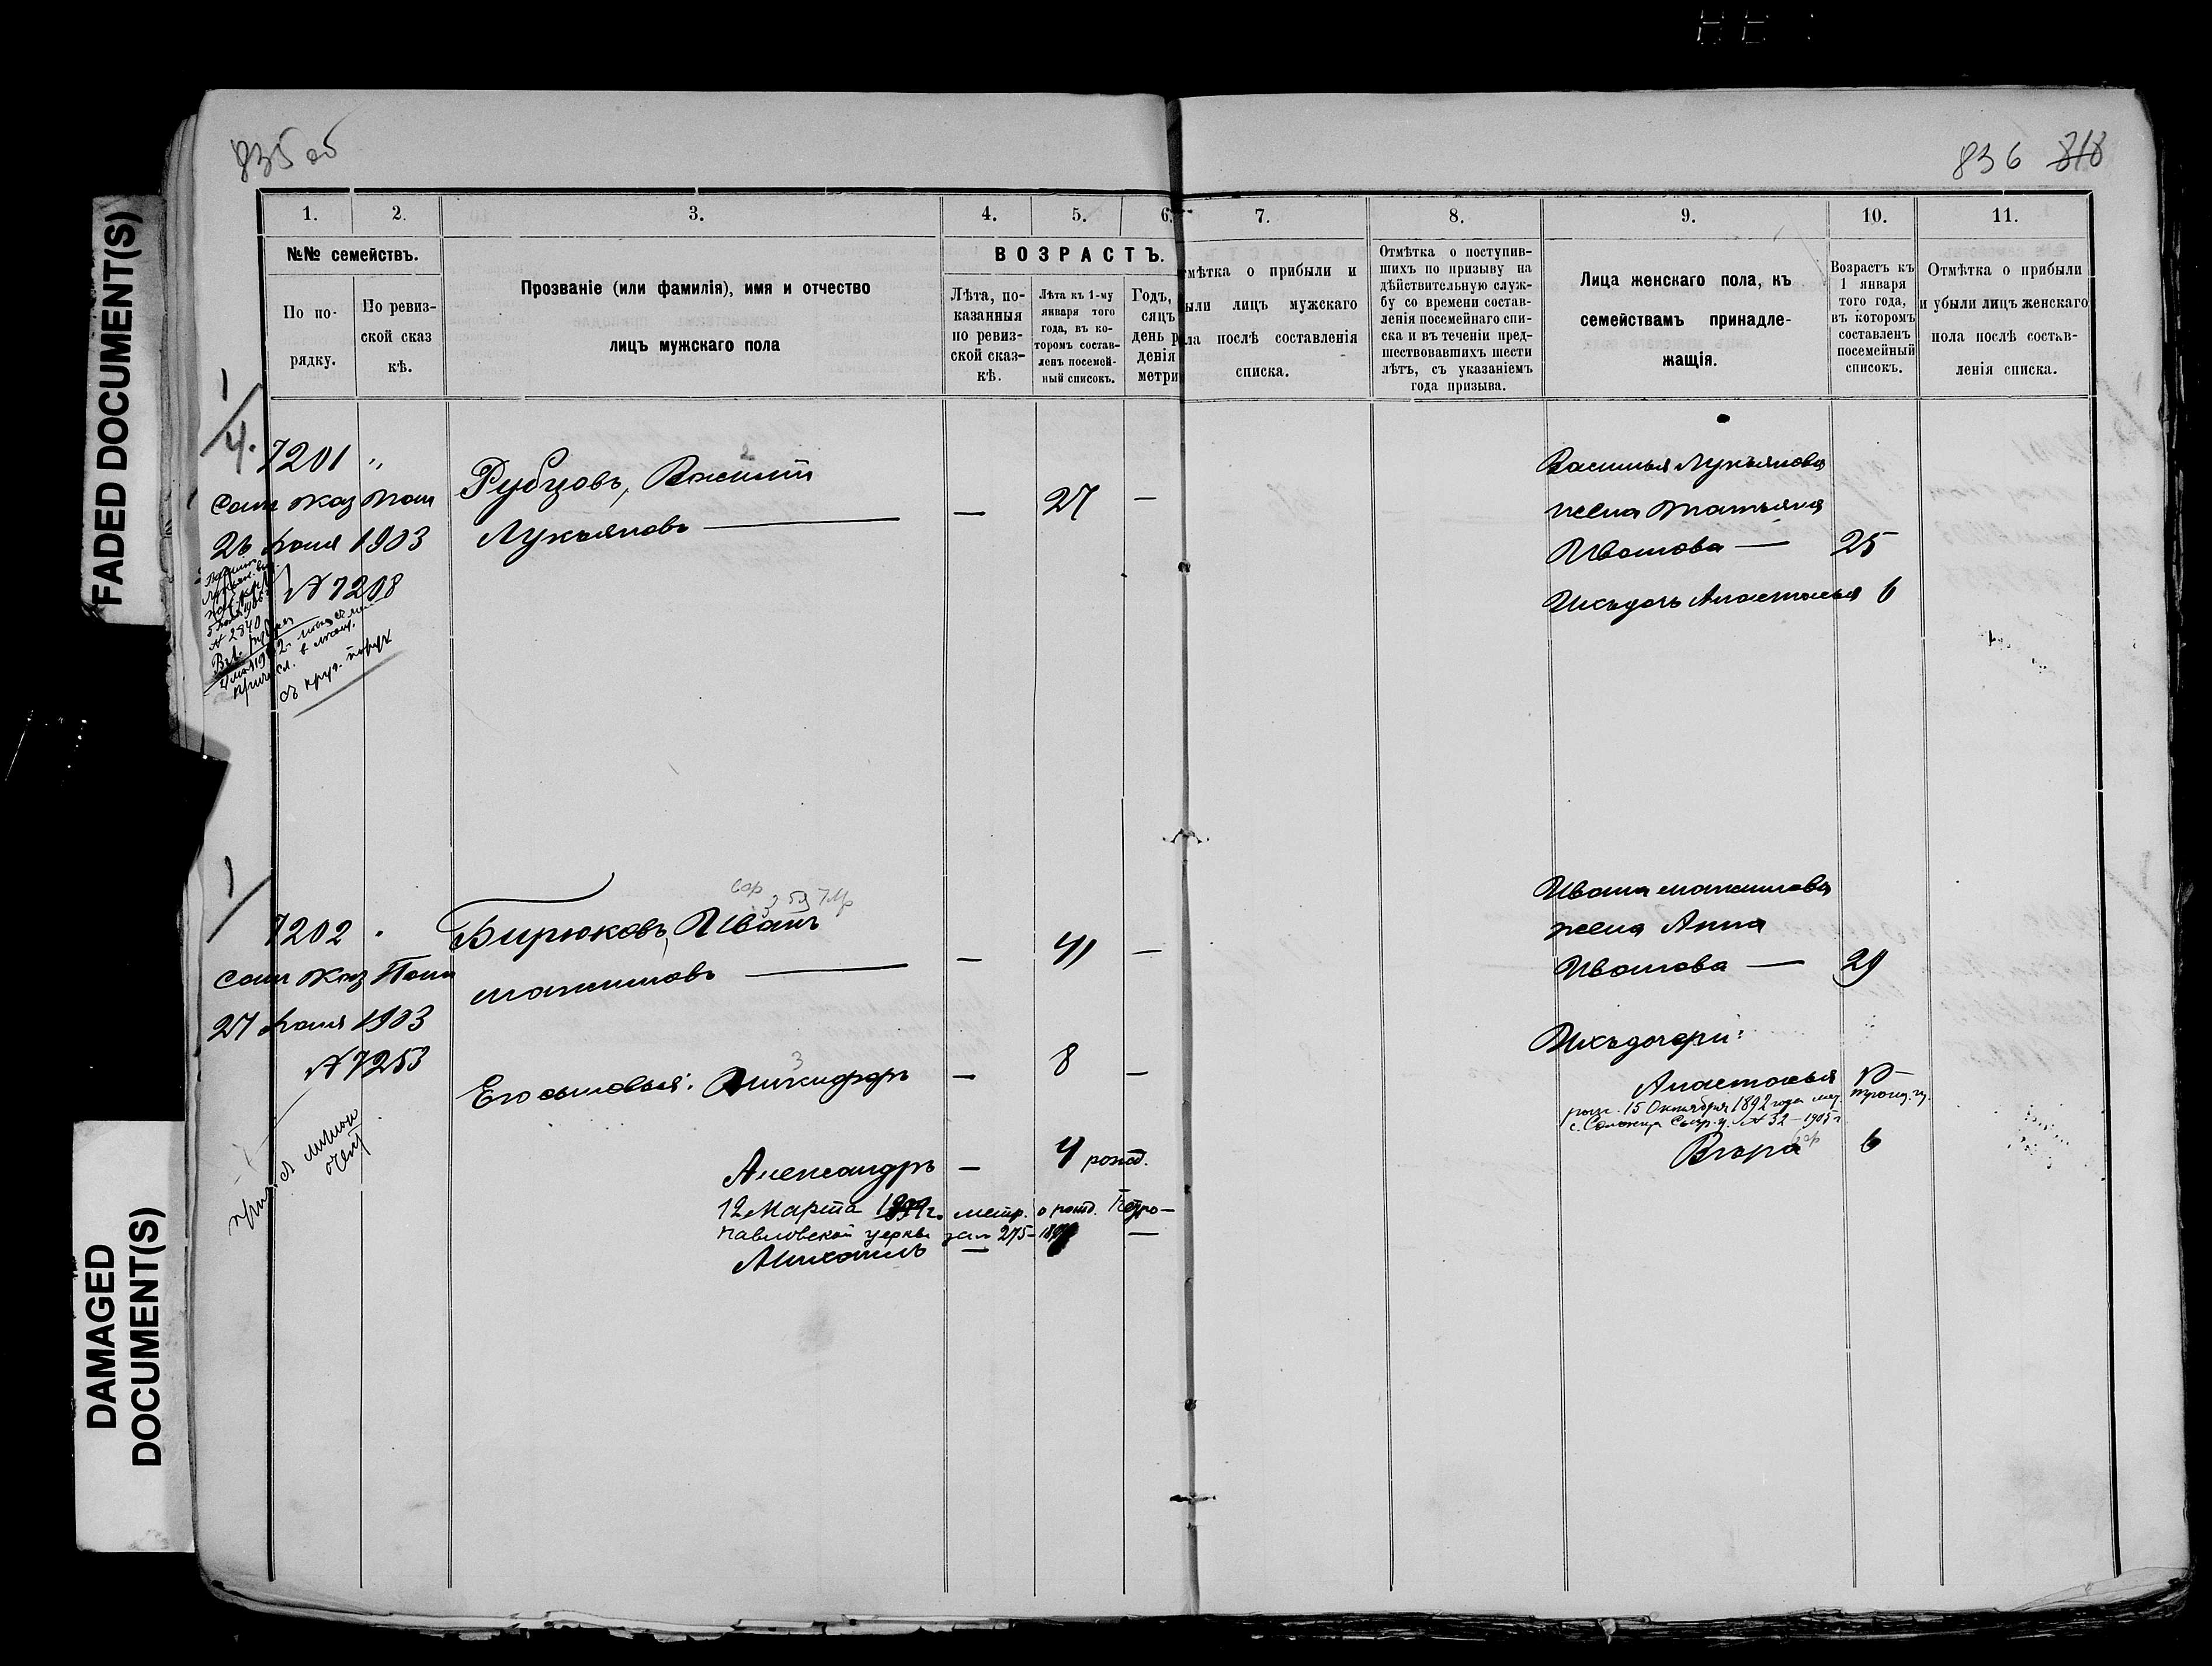 835 об
836 818
FADED DOCUMENT(S)
DAMAGED
DOCUMENT(S)
1.
2.
3.
4.
5.
6.
7.
8.
9.
10.
11.
№№ семействъ.
По по-
рядку.
По ревиз-
ской сказ
кѣ.
Прозваніе (или фамилія), имя и отчество
лицъ мужскаго пола
ВОЗРАСТЪ.
Лѣта, по-
казанныя
по ревиз-
ской сказ-
кѣ.
Лѣта къ 1-му
января того
года, въ ко-
торомъ состав-
ленъ посемей-
ный списокъ.
Годъ,
сяцъ
день р
денія
метри
мѣтка о прибыли и
ыли лицъ мужскаго
ла послѣ составленія
списка.
Отмѣтка о поступив-
шихъ по призыву на
дѣйствительную служ-
бу со времени состав-
ленія посемейнаго спи-
ска и въ теченіи пред-
шествовавшихъ шести
лѣтъ, съ указаніемъ
года призыва.
Лица женскаго пола, къ
семействамъ принадле-
жащія.
Возрастъ къ
1 января
того года,
въ которомъ
составленъ
посемейный
списокъ.
Отмѣтка о прибыли
и убыли лицъ женскаго
пола послѣ состав-
ленія списка.
1
4.
7201 "
Сам Каз Пал
26 1903
№ 7208
съ круг. порук
Рубцовъ, Василій 2
Лукьяновъ — — 27 —
Василья Лукьянова
жена Татьяна
Иванова — 25
Ихъ дочь Анастасья 6
1
7202 "
Сам Каз Пал
27 1903
№ 7253
Бирюковъ, Иванъ
Максимовъ — — 41 —
Его сыновья: Никифоръ 3 — 8 —
Александръ — 4 рожд.
12 Марта 1899 г. метр. о рожд. Петро-
Павловской церкви за № 275 —
Михаилъ — —
Ивана Максимова
жена Анна
Иванова — 29
Ихъ дочери:
Анастасья
рожд. 15 Октября 1892 года
№ 32 — 1905 г.
Вѣра 6